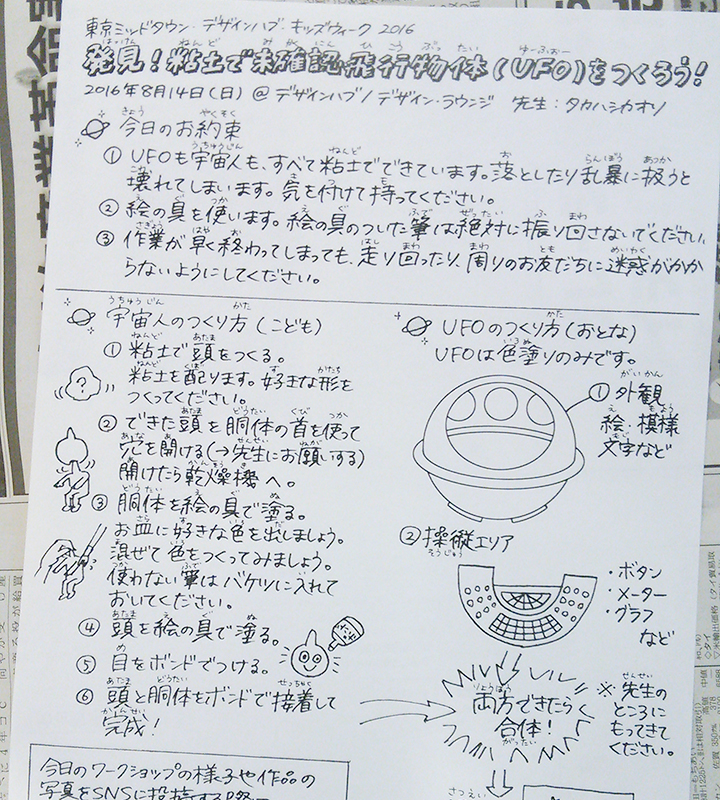 東京ミッドタウン・デザインハブ・キッズウィーク 2016
発見！粘土で未確認飛行物体(UFO)をつくろう！
2016年8月14日(日) @ デザインハブ/デザイン・ラウンジ 先生：タカハシカオリ
今日のお約束
① UFOも宇宙人も、すべて粘土でできています。落としたり乱暴に扱うと
壊れてしまいます。気を付けて持ってください。
② 絵の具を使います。絵の具のついた筆は絶対に振り回さないでください。
③ 作業が早く終わってしまっても、走り回ったり、周りのお友だちに迷惑がかか
らないようにしてください。
宇宙人のつくり方(こども)
① 粘土で頭をつくる。
粘土を配ります。好きな形を
つくってください。
② できた頭を胴体の首を使って
穴を開ける(→先生にお願いする)
開けたら乾燥機へ。
③ 胴体を絵の具で塗る。
お皿に好きな色を出しましょう。
混ぜて色をつくってみましょう。
使わない筆はバケツに入れて
おいてください。
④ 頭を絵の具で塗る。
⑤ 目をボンドでつける。
⑥ 頭と胴体をボンドで接着して
完成！
UFOのつくり方(おとな)
UFOは色塗りのみです。
① 外観
絵・模様
文字など
② 操縦エリア
・ボタン
・メーター
・グラフ
など
両方できたら
合体！
※ 先生の
ところに
もってきて
ください。
今日のワークショップの様子や作品の
写真をSNSに投稿する際